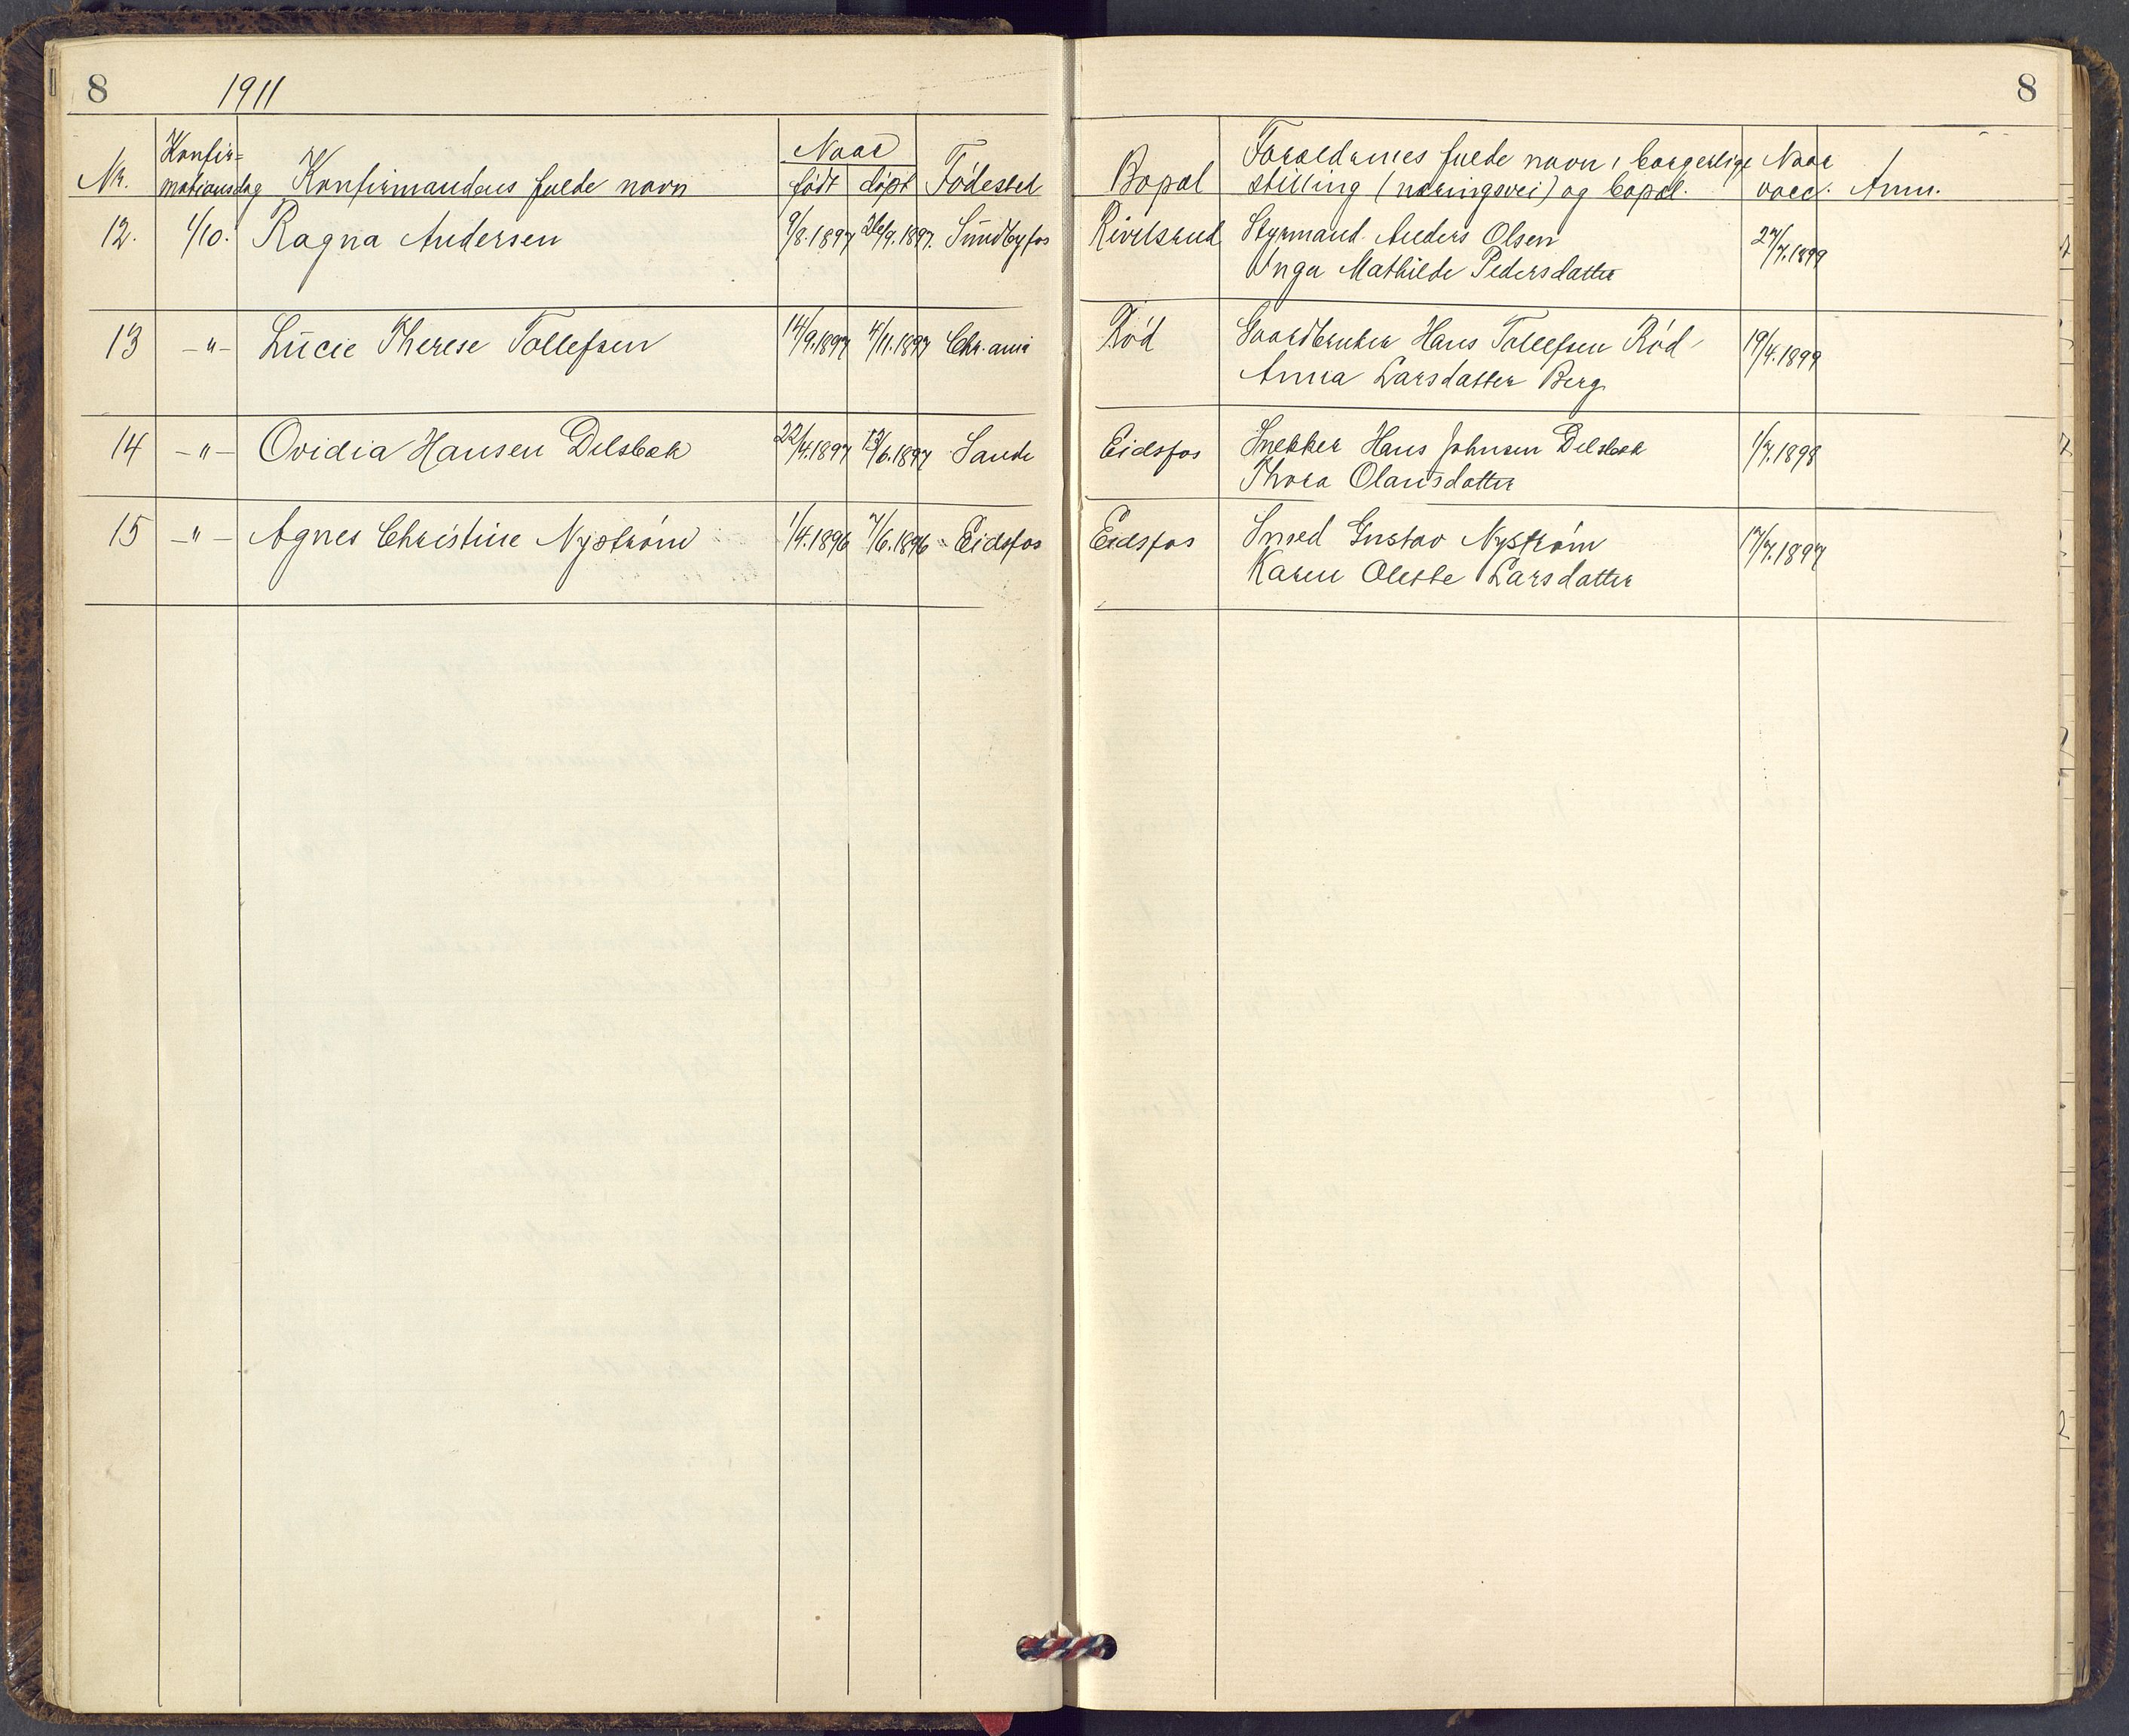 8 1911 8
Nr. Konfir= mationsdag Konfirmandens fulde navn Naar født døpt Fødested Bopæl Forældrenes fulde navn, borgerlige stilling (næringsvei) og bopæl. Naar vacc. Anm.
12. 1/10. Ragna Andersen 9/8.1897 26/9.1897. Sundbyfos Rivelsrud Styrmand Anders Olsen 27/7.1899
Inga Mathilde Pedersdatter
13 -"- Lucie Therese Tollefsen 14/9.1897 4/11.1897 Chr.ania Rød Gaardbruker Hans Tollefsen Rød 19/4.1899
Anna Larsdatter Berg
14 -"- Ovidia Hansen Delsbæk 22/4.1897 13/6.1897 Sande Eidsfos Snekker Hans Johnsen Delsbæk 1/7.1898
Thora Olausdatter
15 -"- Agnes Christine Nystrøm 1/4.1896 7/6.1896 Eidsfos Eidsfos Smed Gustav Nystrøm 17/7.1897
Karen Olette Larsdatter